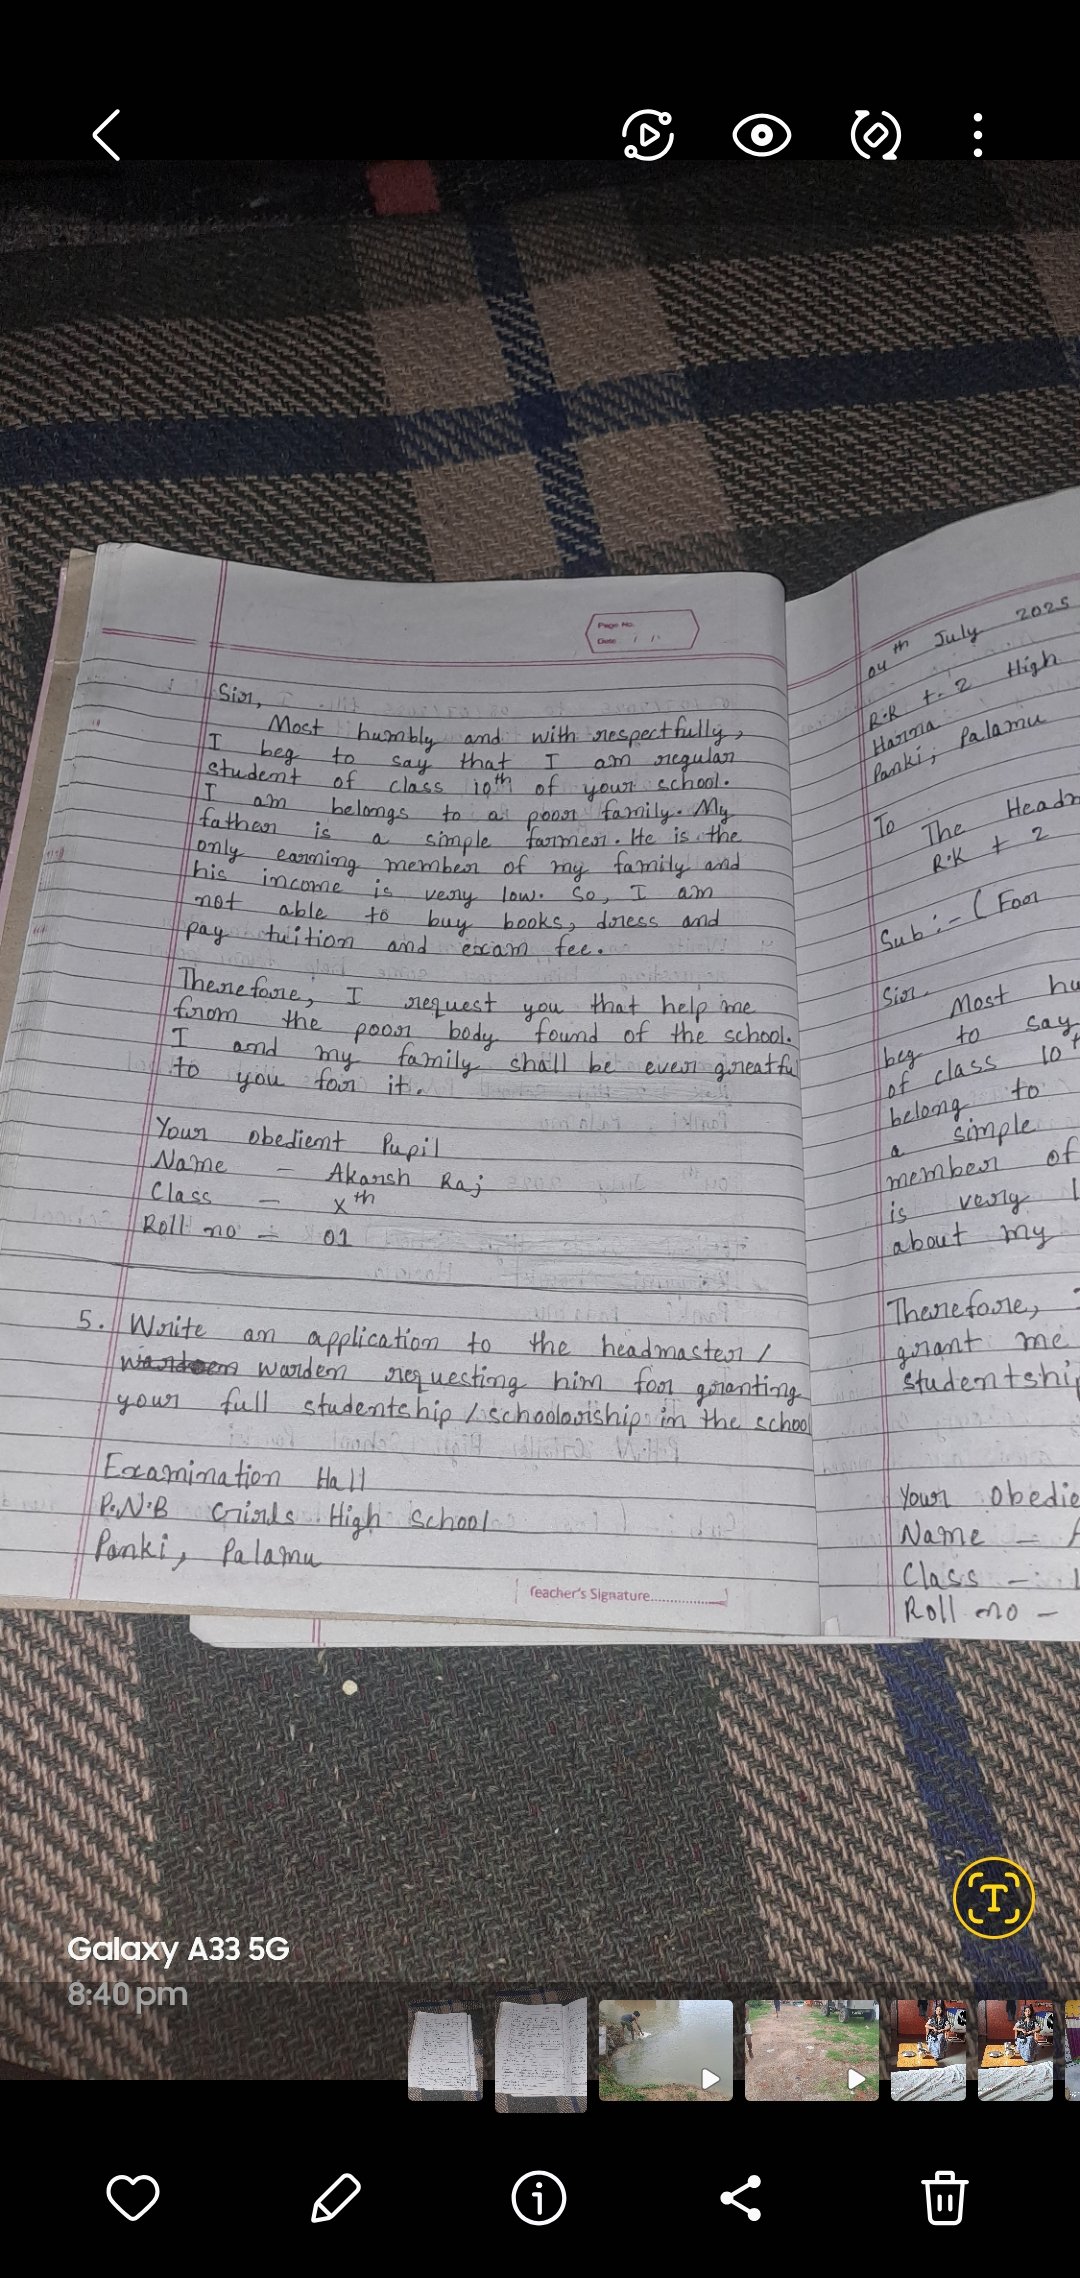 Page No.
Date / /
Sir,
Most humbly and with respectfully,
I beg to say that I am regular
student of class 10th of your school.
I am belongs to a poor family. My
father is a simple farmer. He is the
only earning member of my family and
his income is very low. So, I am
not able to buy books, dress and
pay tuition and exam fee.
Therefore, I request you that help me
from the poor body found of the school.
I and my family shall be ever greatful
to you for it.
Your obedient Pupil
Name - Akarsh Raj
Class - Xth
Roll no - 01
5. Write an application to the headmaster /
warden requesting him for granting
your full studentship / schoolarship in the school
Examination Hall
P.N.B Girls High School
Panki, Palamu
Teacher's Signature
04th July 2025
R.K +2 High
Harna
Panki, Palamu
To
The Headm
R.K + 2
Sub :- ( For
Sir,
Most hu
beg to say
of class 10t
belong to
a simple
member of
is very l
about my
Therefore, I
grant me
studentship
Your obedie
Name - A
Class - 1
Roll no -
Galaxy A33 5G
8:40 pm